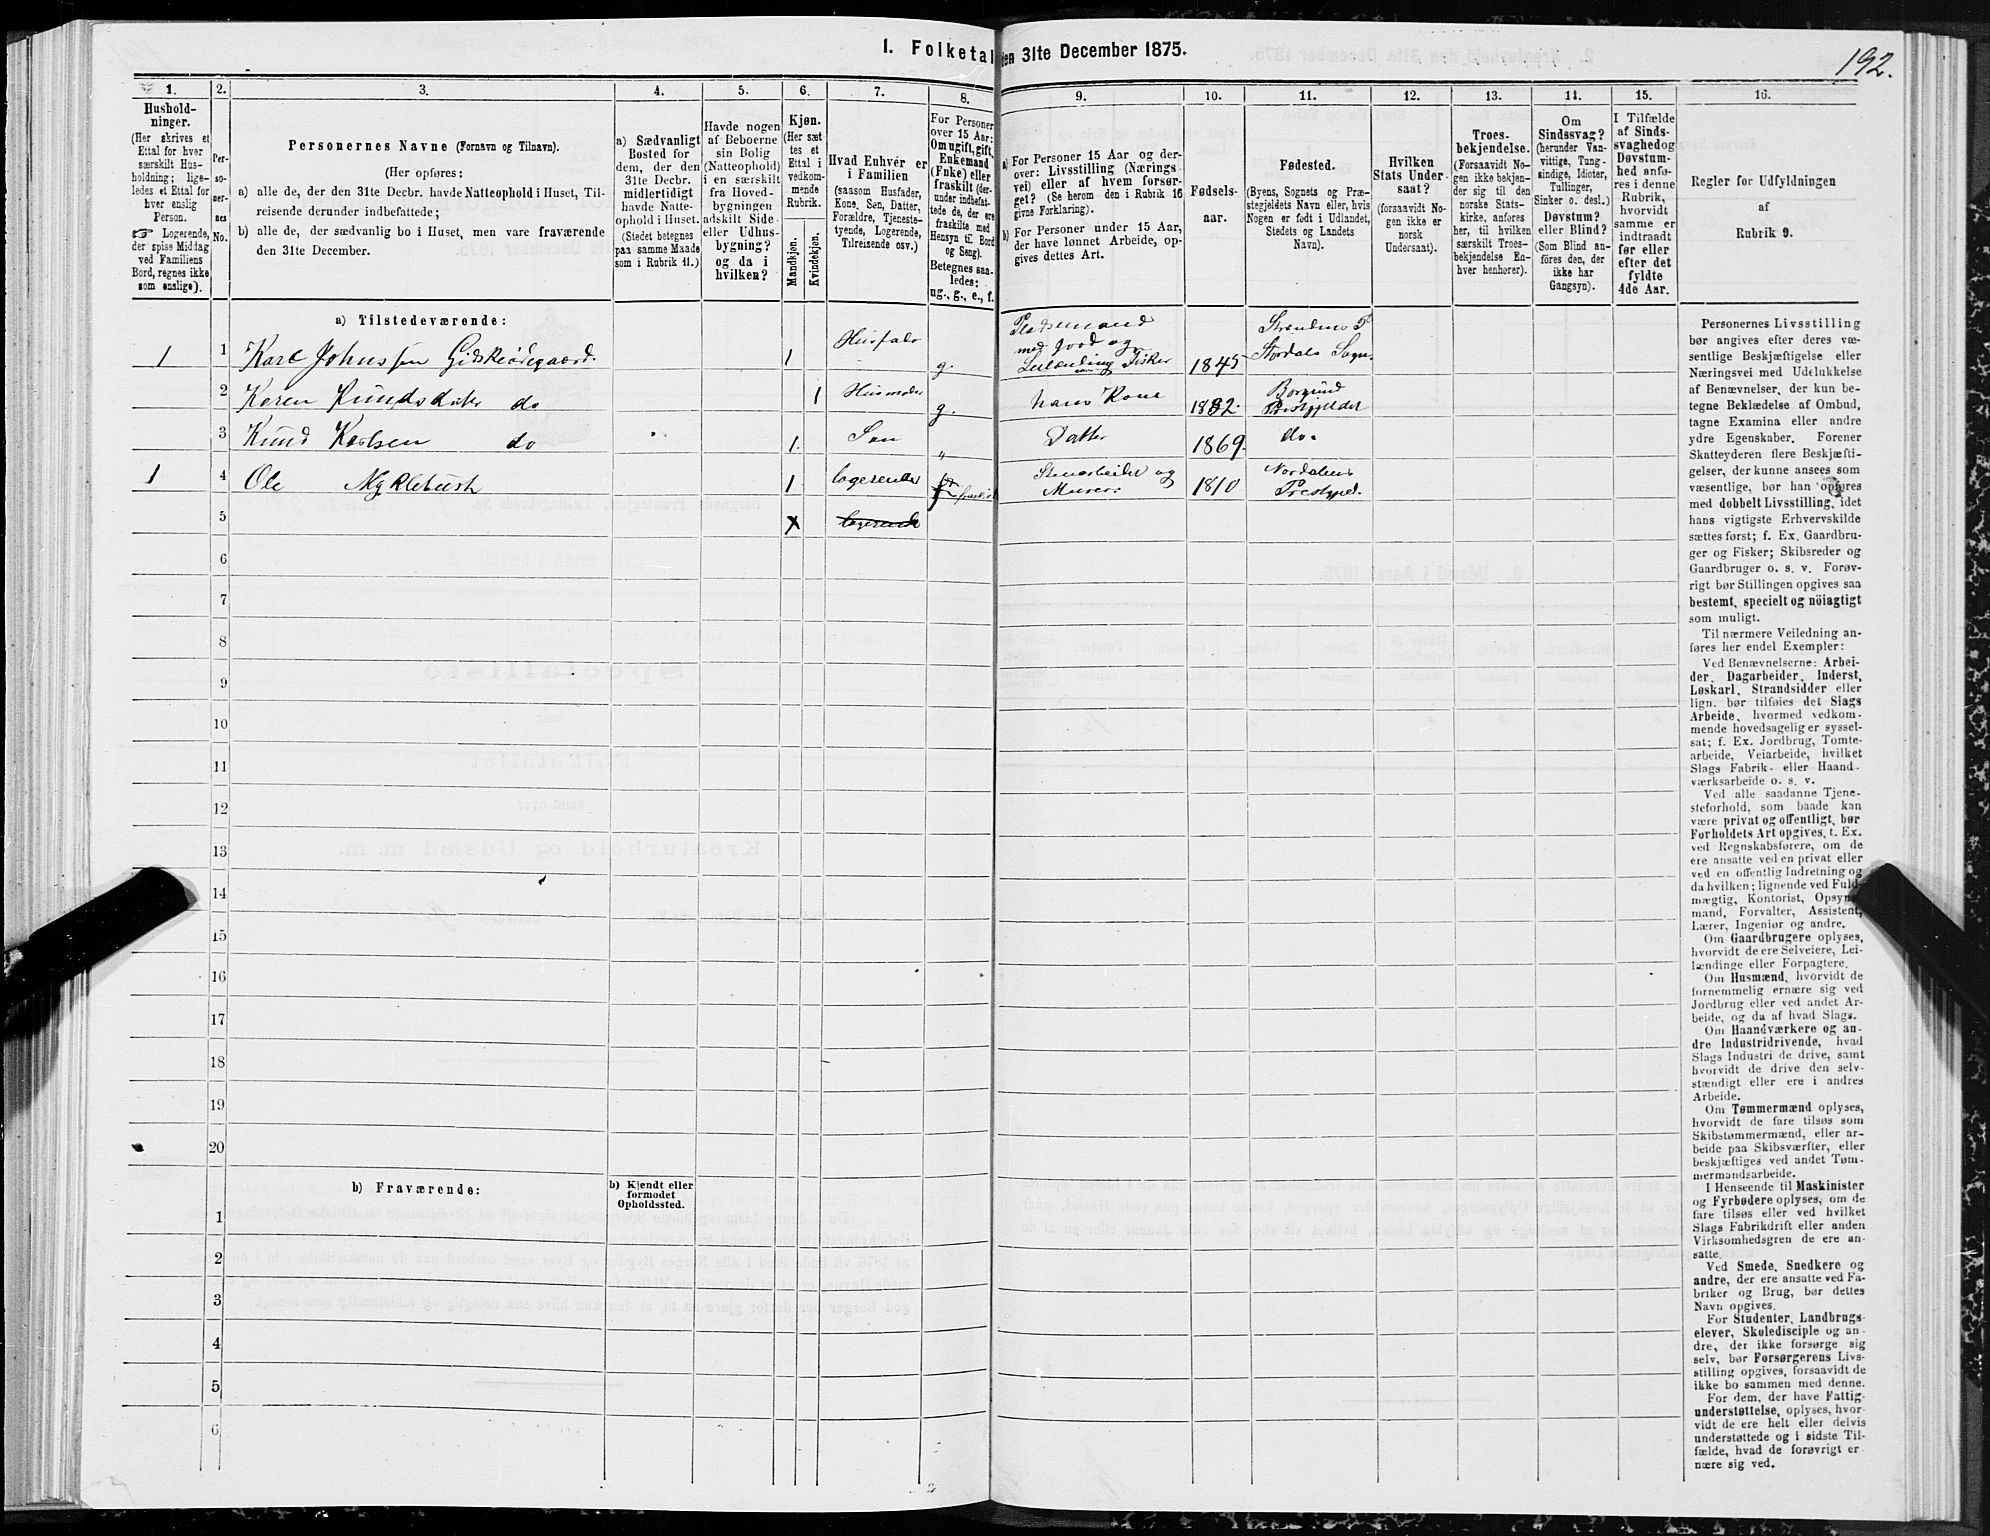 192.
I. Folketal den 31te December 1875.
1. 2. 3. 4. 5. 6. 7. 8. 9. 10. 11. 12. 13. 14. 15. 16.
Hushold-
ninger.
(Her skrives et
Ettal for hver
særskilt Hus-
holdning; lige-
ledes et Ettal for
hver enslig
Person.
☞ Logerende,
der spise Middag
ved Familiens
Bord, regnes ikke
som enslige).
Per-
so-
ner-
nes
No.
Personernes Navne (Fornavn og Tilnavn).
(Her opføres:
a) alle de, der den 31te Decbr. havde Natteophold i Huset, Til-
reisende derunder indbefattede;
b) alle de, der sædvanlig bo i Huset, men vare fraværende
den 31te December.
a) Sædvanligt
Bosted for
dem, der den
31te Decbr.
midlertidigt
havde Natte-
ophold i Huset.
(Stedet betegnes
paa samme Maade
som i Rubrik 11.)
Havde nogen
af Beboerne
sin Bolig
(Natteophold)
i en særskilt
fra Hoved-
bygningen
adskilt Side-
eller Udhus-
bygning?
og da i
hvilken?
Kjøn.
(Her sæt-
tes et
Ettal i
vedkom-
mende
Rubrik.
Mandkjøn.
Kvindekjøn.
Hvad Enhver er
i Familien
(saasom Husfader,
Kone, Søn, Datter,
Forældre, Tjeneste-
tyende, Logerende,
Tilreisende osv.)
For Personer
over 15 Aar:
Om ugift, gift,
Enkemand
(Enke) eller
fraskilt (der-
under indbefat-
tede de, der ere
fraskilte med
Hensyn til Bord
og Seng).
Betegnes saa-
ledes:
ug., g., e., f.
a) For Personer 15 Aar og der-
over: Livsstilling (Nærings-
vei) eller af hvem forsør-
get? (Se herom den i Rubrik 16
givne Forklaring).
b) For Personer under 15 Aar,
der have lønnet Arbeide, op-
gives dettes Art.
Fødsels-
aar.
Fødested.
(Byens, Sognets og Præ-
stegjeldets Navn eller, hvis
Nogen er født i Udlandet,
Stedets og Landets
Navn).
Hvilken
Stats Under-
saat?
(forsaavidt No-
gen ikke er
norsk
Undersaat).
Troes-
bekjendelse.
(Forsaavidt No-
gen ikke bekjen-
der sig til den
norske Stats-
kirke, anføres
her, til hvilken
særskilt Troes-
bekjendelse En-
hver henhører).
Om
Sindssvag?
(herunder Van-
vittige, Tung-
sindige, Idioter,
Tullinger,
Sinker o. desl.)
Døvstum?
eller Blind?
(Som Blind an-
føres den, der
ikke har
Gangsyn).
I Tilfælde
af Sinds-
svaghed og
Døvstum-
hed anfø-
res i denne
Rubrik,
hvorvidt
samme er
indtraadt
før eller
efter det
fyldte
4de Aar.
Regler for Udfyldningen
af
Rubrik 9.
a) Tilstedeværende:
1 1 Karl Johnssen Gidskeødegaard. 1 Husfader g. Pladsemand med Jord og Leilænding Fisker 1845 Strandens P Stordals Sogn.
2 Karen Knudsdatter do 1 Husmoder g. hans Kone 1832. Borgund Prestgjeldet
3 Knud Karlsen do 1. Søn „ Datter 1869. do.
1 4 Ole Myklebust 1 logerende fraskilt Stenarbeider og Murer: 1810 Nordalens Prestgjeld.
5 x logerende
6
7
8
9
10
11
12
13
14
15
16
17
18
19
20
b) Fraværende:
b) Kjendt eller
formodet
Opholdssted.
1
2
3
4
5
6
Personernes Livsstilling
bør angives efter deres væ-
sentlige Beskjæftigelse eller
Næringsvei med Udelukkelse
af Benævnelser, der kun be-
tegne Beklædelse af Ombud,
tagne Examina eller andre
ydre Egenskaber. Forener
Skatteyderen flere Beskjæfti-
gelser, der kunne ansees som
væsentlige, bør han opføres
med dobbelt Livsstilling, idet
hans vigtigste Erhvervskilde
sættes først; f. Ex. Gaardbru-
ger og Fisker; Skibsreder og
Gaardbruger o. s. v. Forøv-
rigt bør Stillingen opgives saa
bestemt, specielt og nöiagtigt
som muligt.
Til nærmere Veiledning an-
føres her endel Exempler:
Ved Benævnelserne: Arbei-
der, Dagarbeider, Inderst,
Løskarl, Strandsidder eller
lign. bør tilføies det Slags
Arbeide, hvormed vedkom-
mende hovedsagelig er syssel-
sat; f. Ex. Jordbrug, Tomte-
arbeide, Veiarbeide, hvilket
Slags Fabrik- eller Haand-
værksarbeide o. s. v.
Ved alle saadanne Tjene-
steforhold, som baade kan
være privat og offentligt, bør
Forholdets Art opgives, t. Ex.
ved Regnskabsførere, om de
ere ansatte ved en privat eller
ved en offentlig Indretning og
da hvilken; lignende ved Fuld-
mægtig, Kontorist, Opsyns-
mand, Forvalter, Assistent,
Lærer, Ingeniør og andre.
Om Gaardbrugere oplyses,
hvorvidt de ere Selveiere, Lei-
lændinge eller Forpagtere.
Om Husmænd, hvorvidt de
fornemmelig ernære sig ved
Jordbrug eller ved andet Ar-
beide, og da af hvad Slags.
Om Haandværkere og an-
dre Industridrivende, hvad
Slags Industri de drive, samt
hvorvidt de drive den selv-
stændigt eller ere i andres
Arbeide.
Om Tømmermænd oplyses,
hvorvidt de fare tilsøs som
Skibstømmermænd, eller ar-
beide paa Skibsværfter, eller
beskjæftiges ved andet Tøm-
mermandsarbeide.
I Henseende til Maskinister
og Fyrbødere oplyses, om de
fare tilsøs eller ved hvilket
Slags Fabrikdrift eller anden
Virksomhedsgren de ere an-
satte.
Ved Smede, Snedkere og
andre, der ere ansatte ved Fa-
briker og Brug, bør dettes
Navn opgives.
For Studenter, Landbrugs-
elever, Skoledisciple og an-
dre, der ikke forsørge sig
selv, bør Forsørgerens Livs-
stilling opgives, forsaavidt de
ikke bo sammen med denne.
For dem, der have Fattig-
understøttelse, oplyses, hvor-
vidt de ere helt eller delvis
understøttede og i sidste Til-
fælde, hvad de forøvrigt er-
nære sig ved.